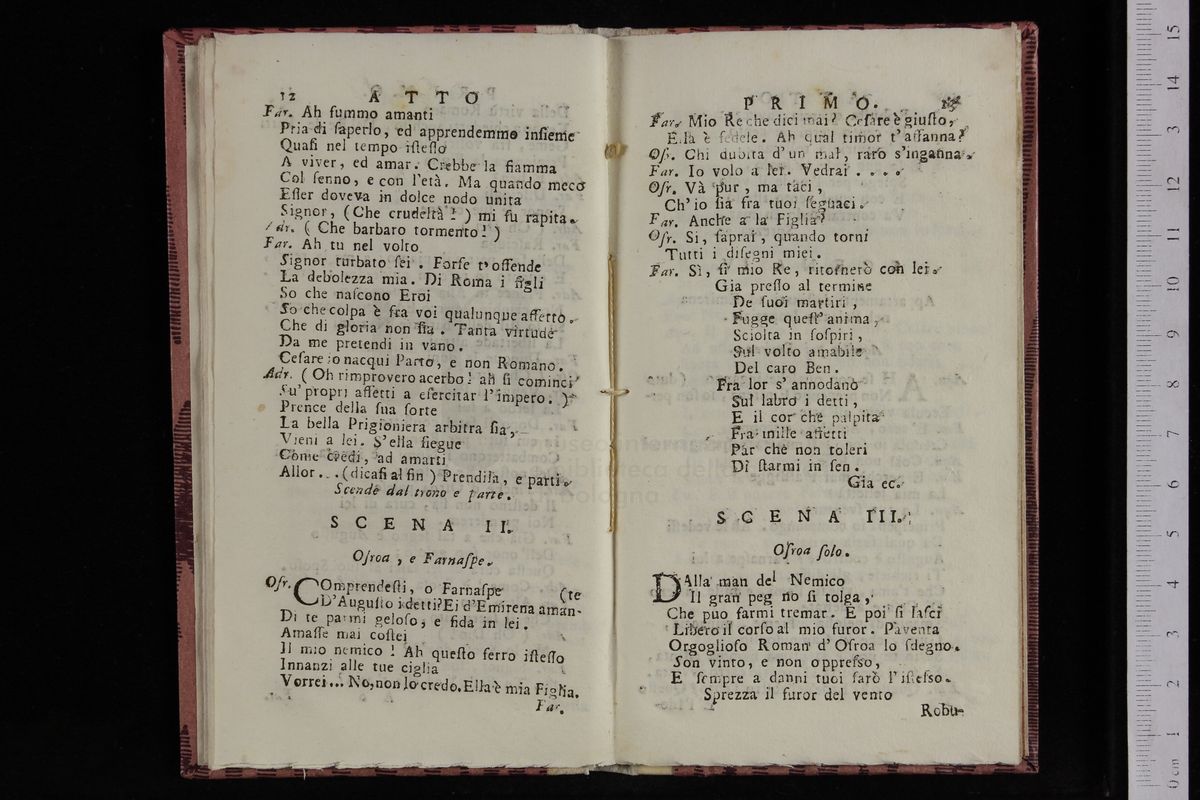 12 ATTO
Far. Ah ſummo amanti
Pria di ſaperlo, ed apprendemmo inſieme
Quaſi nel tempo iſteſſo
A viver, ed amar. Crebbe la fiamma
Col ſenno, e con l'età. Ma quando meco
Eſſer doveva in dolce nodo unita
Signor, (Che crudeltà!) mi fu rapita.
Adr. (Che barbaro tormento!)
Far. Ah tu nel volto
Signor turbato ſei. Forſe t'offende
La debolezza mia. Di Roma i figli
So che naſcono Eroi
So che colpa è fra voi qualunque affetto.
Che di gloria non ſia. Tanta virtude
Da me pretendi in vano.
Ceſare io nacqui Parto, e non Romano.
Adr. (Oh rimprovero acerbo! ah ſi cominci
Su' propri affetti a eſercitar l'impero.)
Prence della ſua ſorte
La bella Prigioniera arbitra ſia,
Vieni a lei. S'ella ſiegue
Come credi, ad amarti
Allor... (dicaſi al fin) Prendila, e parti.
Scende dal trono e parte.
SCENA II.
Oſroa, e Farnaſpe.
Oſr. COmprendeſti, o Farnaſpe (te
D'Auguſto i detti? Ei d'Emirena aman-
Di te parmi geloſo, e fida in lei.
Amaſſe mai coſtei
Il mio nemico! Ah queſto ferro iſteſſo
Innanzi alle tue ciglia
Vorrei... No, non lo credo. Ella è mia Figlia.
Far.
PRIMO. 13
Far. Mio Re che dici mai? Ceſare è giuſto,
Ella è fedele. Ah qual timor t'affanna?
Oſr. Chi dubita d'un mal, raro s'inganna.
Far. Io volo a lei. Vedrai . . . .
Oſr. Và pur, ma taci,
Ch'io ſia fra tuoi ſeguaci.
Far. Anche a la Figlia?
Oſr. Si, ſaprai, quando torni
Tutti i diſegni miei.
Far. Sì, ſi mio Re, ritornerò con lei.
Gia preſſo al termine
De ſuoi martiri,
Fugge queſt' anima,
Sciolta in ſoſpiri,
Sul volto amabile
Del caro Ben.
Fra lor s'annodano
Sul labro i detti,
E il cor che palpita
Fra mille affetti
Par che non toleri
Dì ſtarmi in ſen.
Gia ec.
SCENA III.
Oſroa ſolo.
DAlla man del Nemico
Il gran peg no ſi tolga,
Che puo farmi tremar. E poi ſi laſci
Libero il corſo al mio furor. Paventa
Orgoglioſo Roman d'Oſroa lo ſdegno.
Son vinto, e non oppreſso,
E ſempre a danni tuoi ſarò l'iſteſso.
Sprezza il furor del vento
Robu-